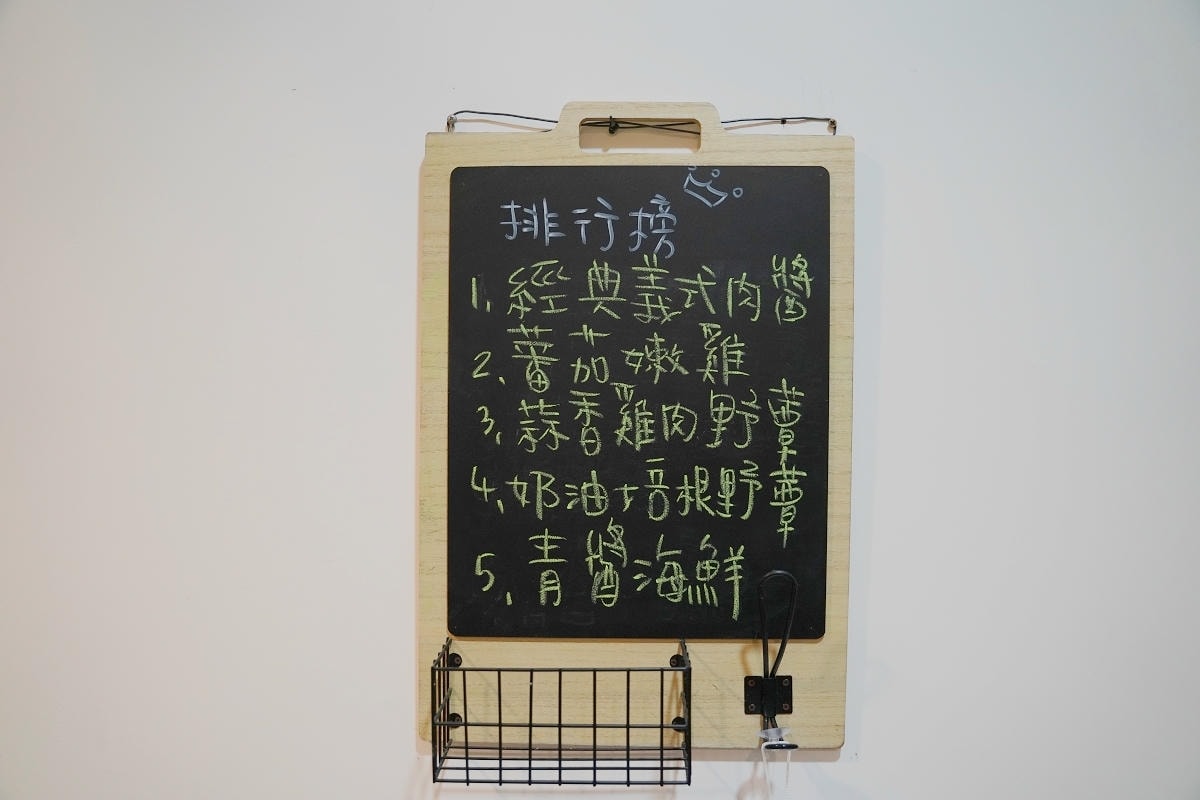 排行榜
1. 經典義式肉醬
2. 蕃茄嫩雞
3. 蒜香雞肉野蕈
4. 奶油培根野蕈
5. 青醬海鮮